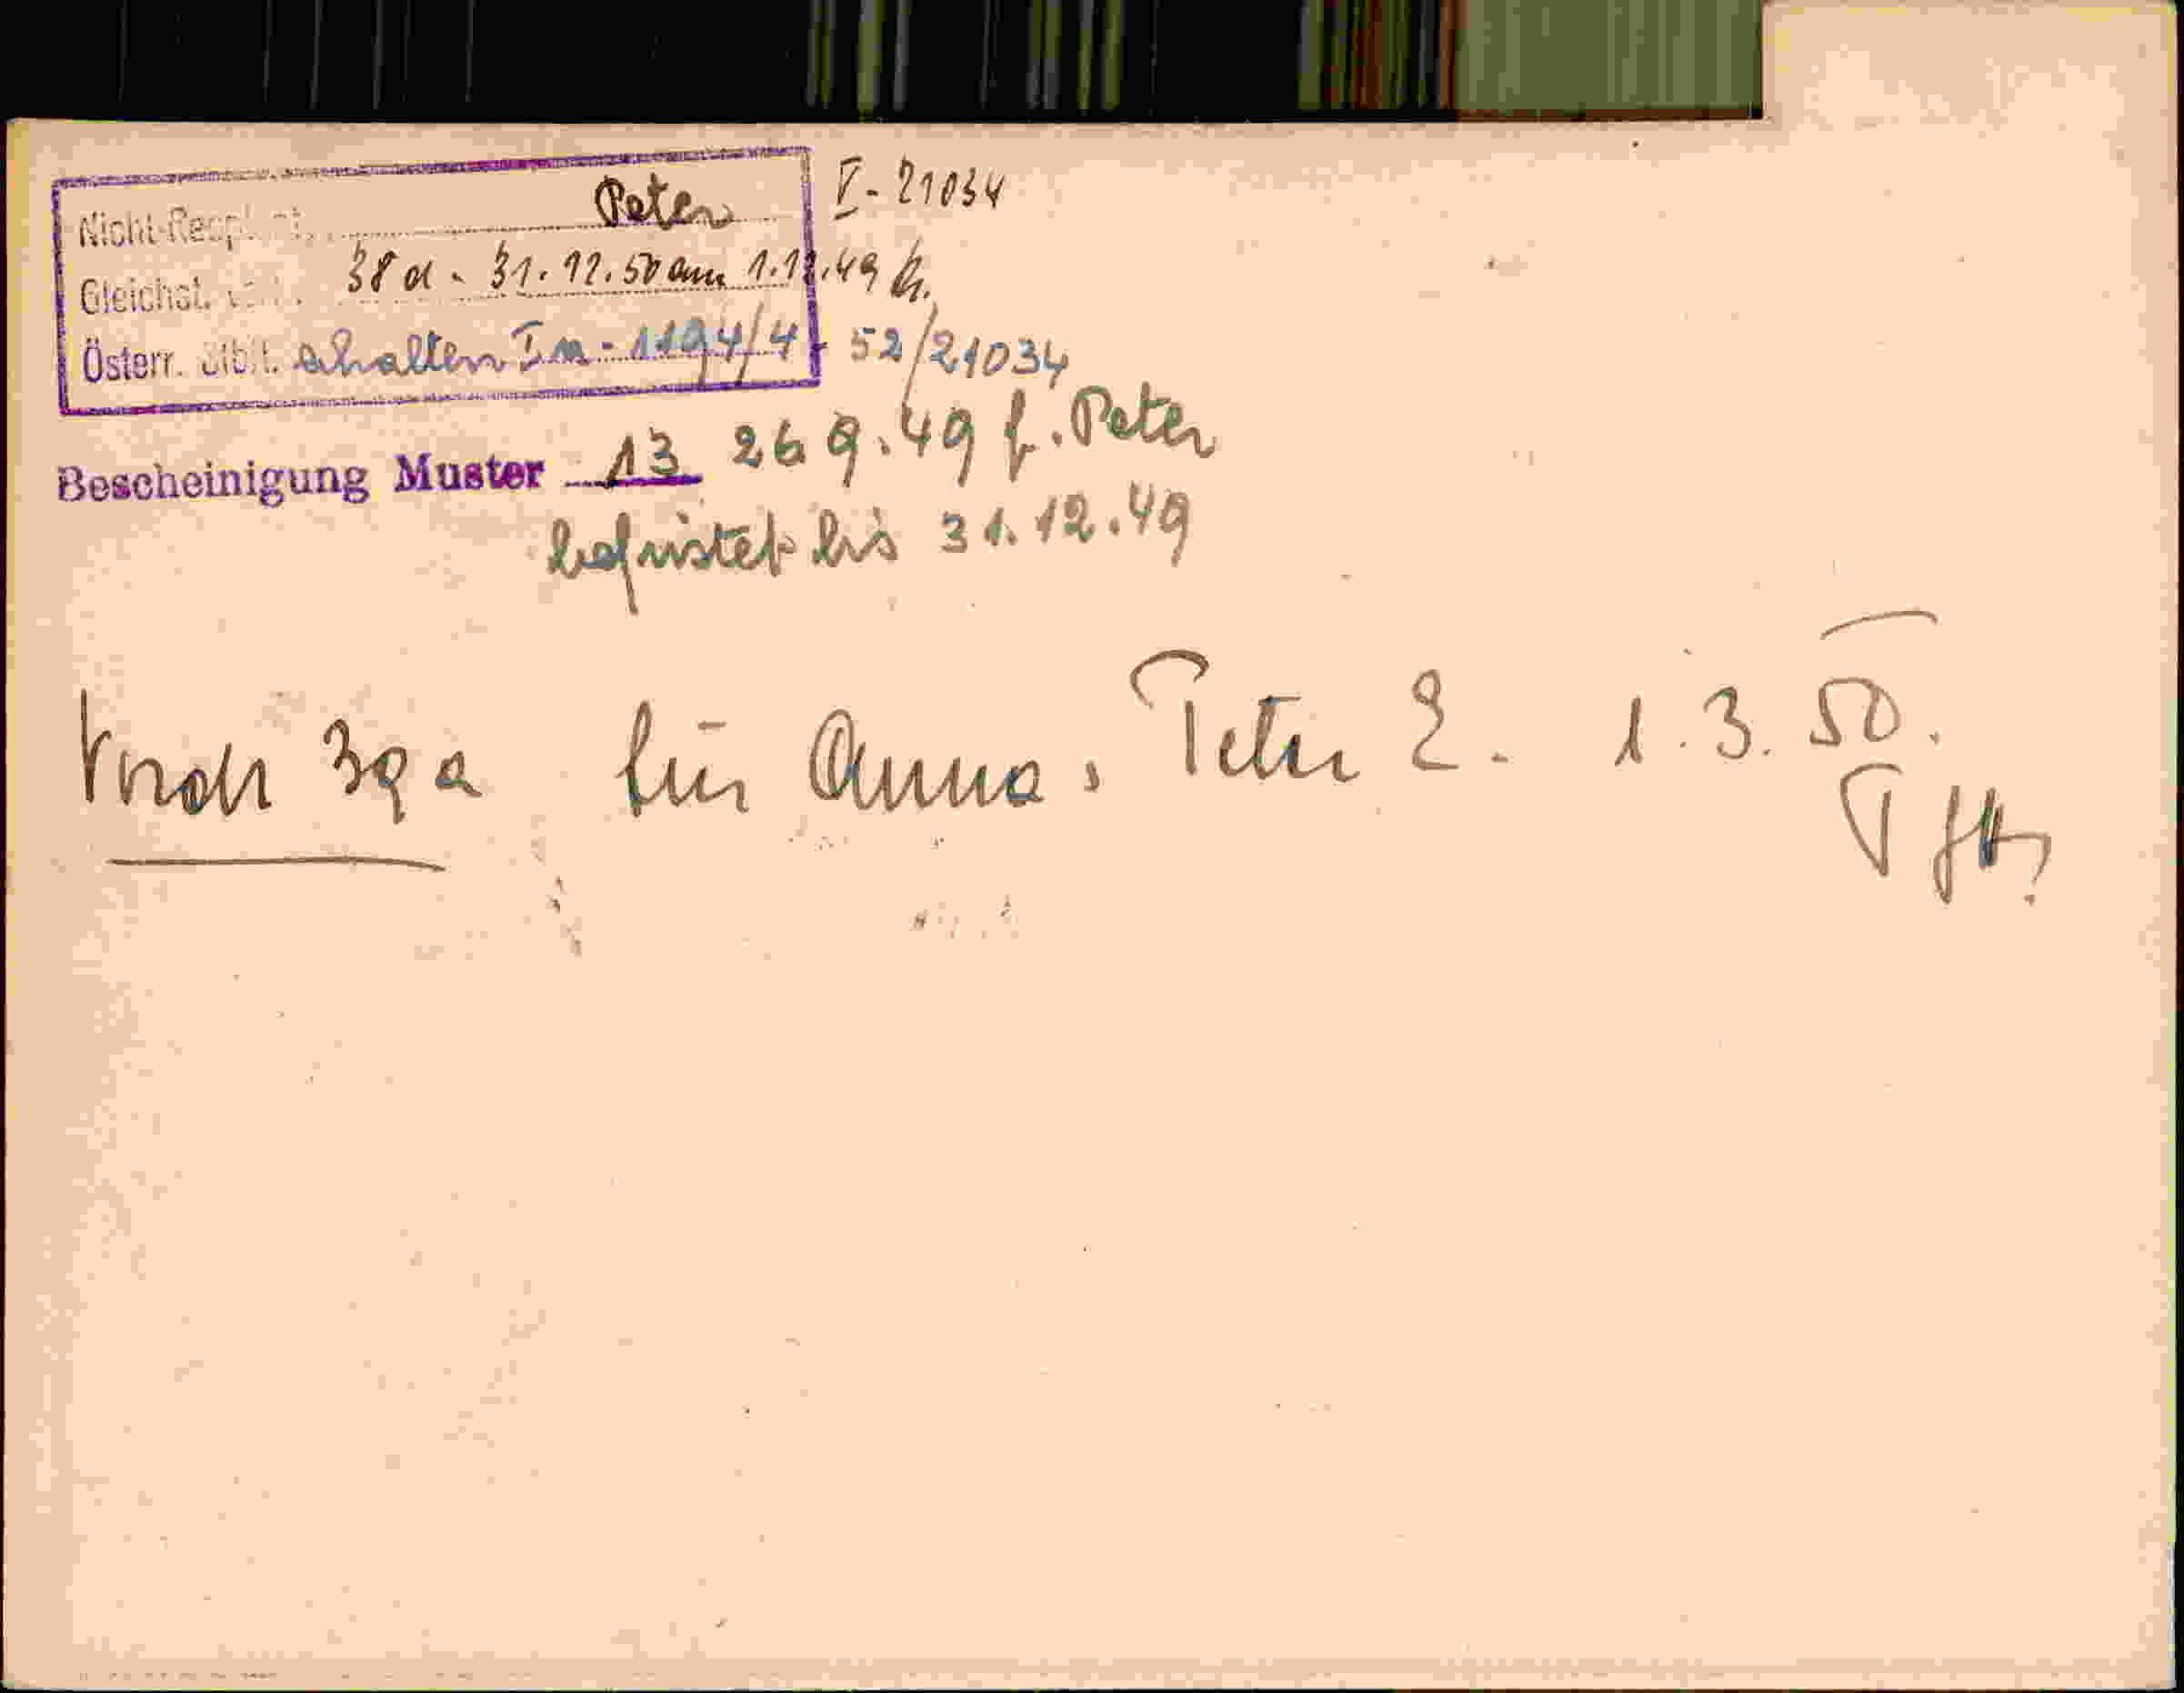 Peter V-21034
Gleichst. 38 d - 31.12.50 am 1.12.49
Österr. Stb. erhalten I a - 1194/4 - 52/21034
Bescheinigung Muster 13 26 9.49 f. Peter
befristet bis 31.12.49
Vordr 39a für Anna, Peter E. 1.3.50.